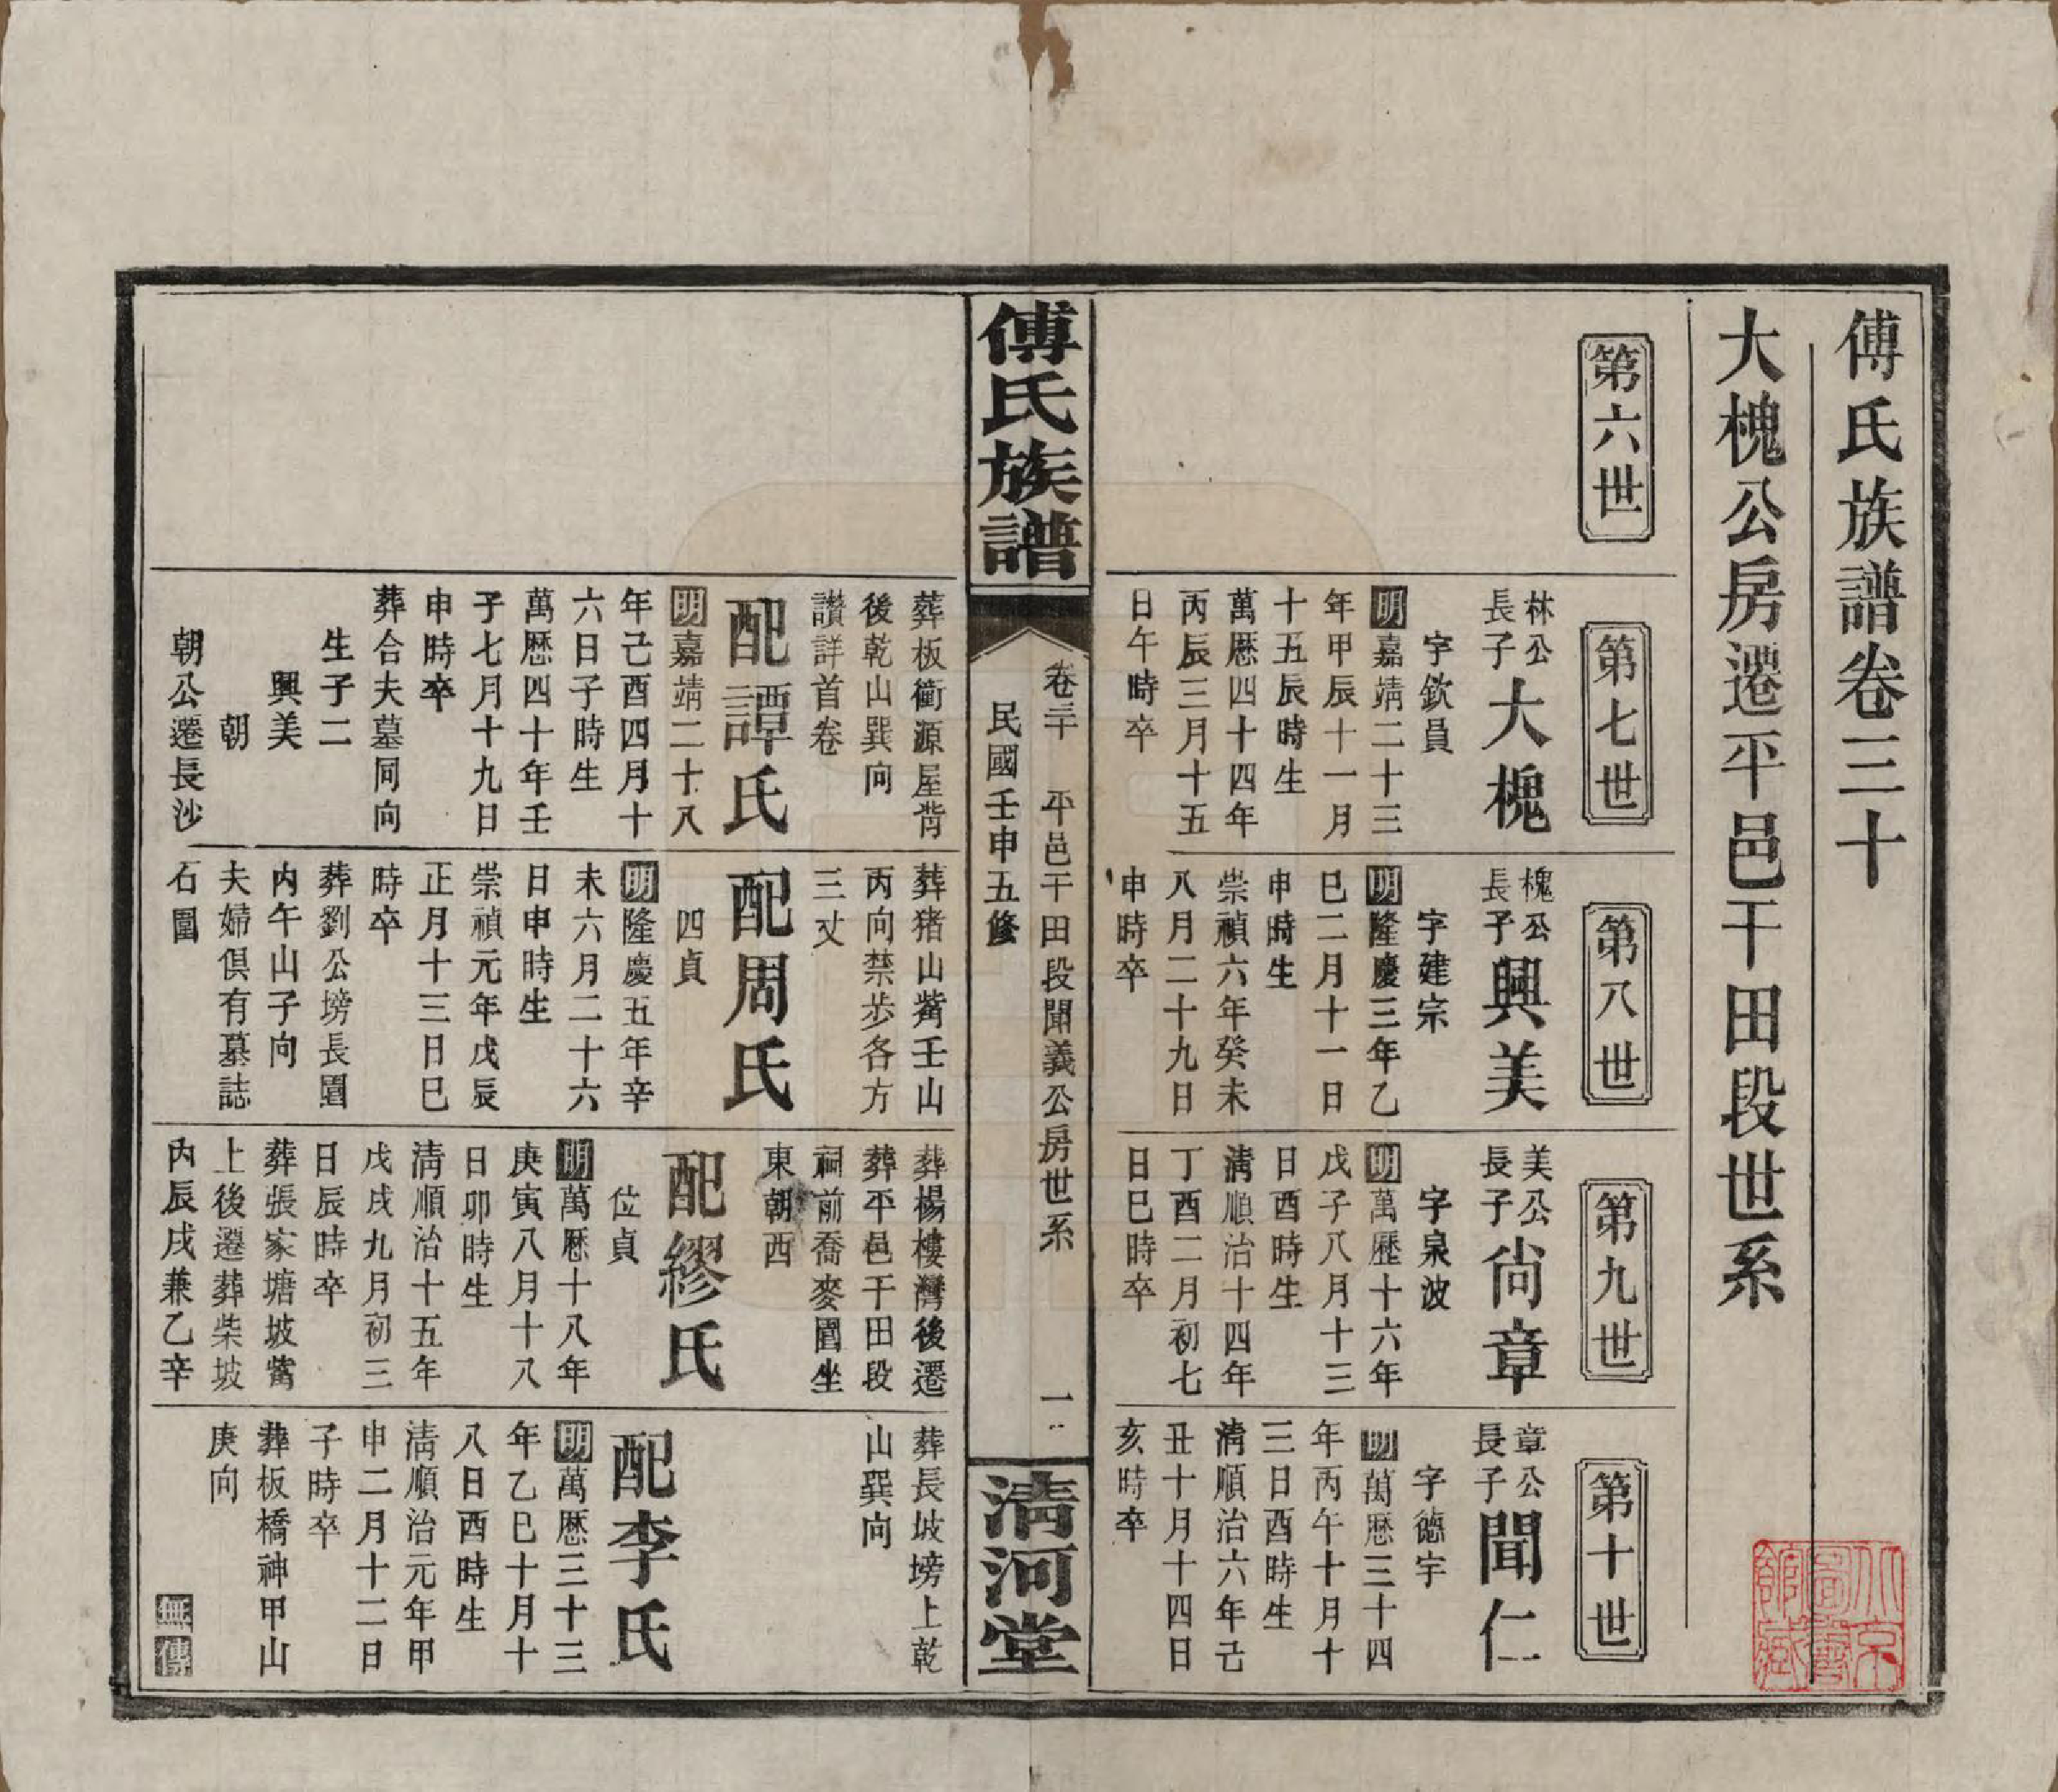 傅氏族譜卷三十
大槐公房遷平邑干田段世系
第六世
第七世
林公
長子
大槐
字欽員
明嘉靖二十三
年甲辰十一月
十五辰時生
萬厯四十四年
丙辰三月十五
日午時卒
葬板衝源屋背
後乾山巽向
讃詳首卷
配譚氏
明嘉靖二十八
年己酉四月十
六日子時生
萬厯四十年壬
子七月十九日
申時卒
葬合夫墓同向
生子二
興美
朝
朝公遷長沙
第八世
槐公
長子
興美
字建宗
明隆慶三年乙
巳二月十一日
申時生
崇禎六年癸未
八月二十九日
申時卒
葬猪山觜壬山
丙向禁步各方
三丈
配周氏
四貞
明隆慶五年辛
未六月二十六
日申時生
崇禎元年戊辰
正月十三日巳
時卒
葬劉公塝長園
内午山子向
夫婦俱有墓誌
石圍
第九世
美公
長子
尙章
字泉波
明萬歷十六年
戊子八月十三
日酉時生
淸順治十四年
丁酉二月初七
日巳時卒
葬楊樓灣後遷
葬平邑干田段
祠前喬麥園坐
東朝西
配繆氏
位貞
明萬厯十八年
庚寅八月十八
日卯時生
淸順治十五年
戊戌九月初三
日辰時卒
葬張家塘坡觜
上後遷葬柴坡
内辰戌兼乙辛
第十世
章公
長子
聞仁
字德宇
明萬厯三十四
年丙午十月十
三日酉時生
淸順治六年己
丑十月十四日
亥時卒
葬長坡塝上乾
山巽向
配李氏
明萬厯三十三
年乙巳十月十
八日酉時生
淸順治元年甲
申二月十二日
子時卒
葬板橋神甲山
庚向
無傳
傅氏族譜
卷三十
平邑干田段聞義公房世系
一
民國壬申五修
淸河堂
北京
圖書
館藏